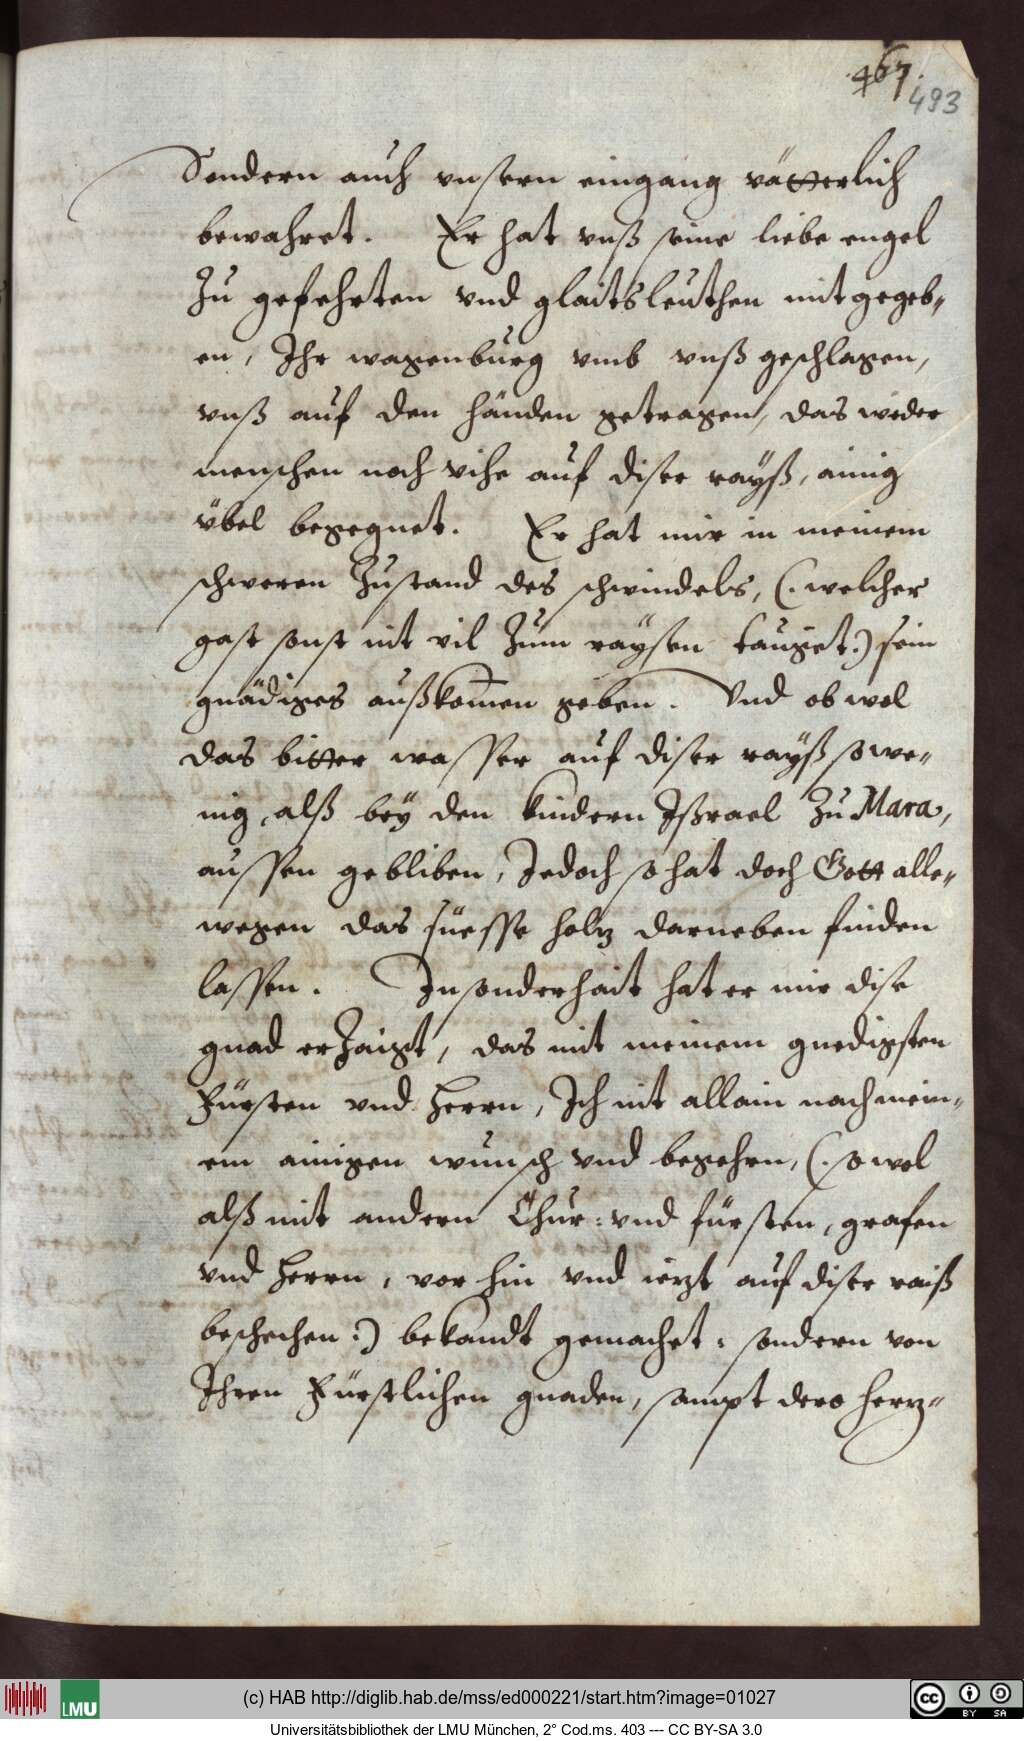 467.
493
Sondern auch vnsern eingang vätterlich
bewahret. Er hat vnß seine liebe engel
Zu gefehrten vnd glaitsleuthen mitgegeb-
en, Ihr wagenburg vmb vnß geschlagen,
vnß auf den händen getragen, das weder
menschen noch vihe auf diser rayß, ainig
übel begegnet. Er hat mir in meinem
schweren Zustand des schwindels, (.welcher
gast sonst nit vil Zum raysen tauget.) sein
gnädiges außkomen geben. Vnd ob wol
das bitter wasser auf diser rayß so we-
nig, alß bey den kindern Ißrael Zu Mara,
aussen gebliben, Jedoch so hat doch Gott alle-
wegen das süesse holtz darneben finden
lassen. Insonderhait hat er mir dise
gnad erZaigt, das mit meinem gnedigsten
Fürsten vnd Herrn, Ich nit allain nach mein-
em ainigen wunsch vnd begehrn, (.so wol
alß mit andern Chur: vnd fürsten, grafen
vnd Herrn, vor hin vnd ietzt auf diser raiß
beschehen:) bekandt gemachet: sondern von
Ihren Fürstlichen gnaden, sampt dero Hertz-
LMU
(c) HAB http://diglib.hab.de/mss/ed000221/start.htm?image=01027
cc BY SA
Universitätsbibliothek der LMU München, 2° Cod.ms. 403 --- CC BY-SA 3.0